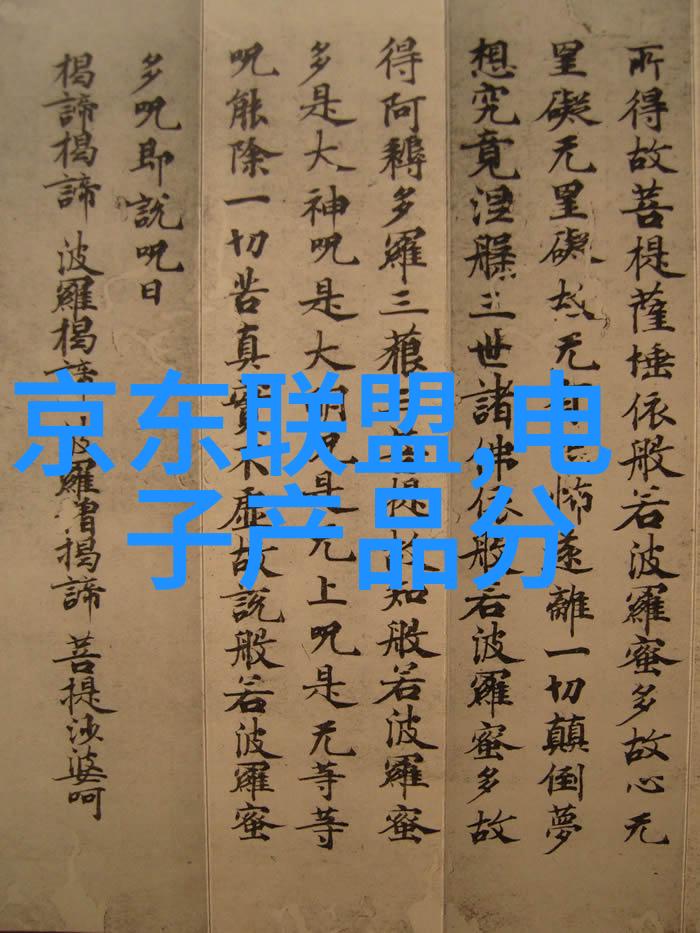 所得故菩提薩埵依般若波羅蜜多故心无
罣礙无罣礙故无怖遂離一切顛倒夢
想究竟涅槃三世諸佛依般若波羅蜜多故
得阿耨多羅三藐三菩提故知般若波羅蜜
多是大神呪是大明呪是无上呪是无等等
呪能除一切苦真實不虛故說般若波羅蜜
多呪即說呪曰
揭諦揭諦 波羅揭諦 波羅僧揭諦 菩提沙婆呵
京东联盟,电
子产品分